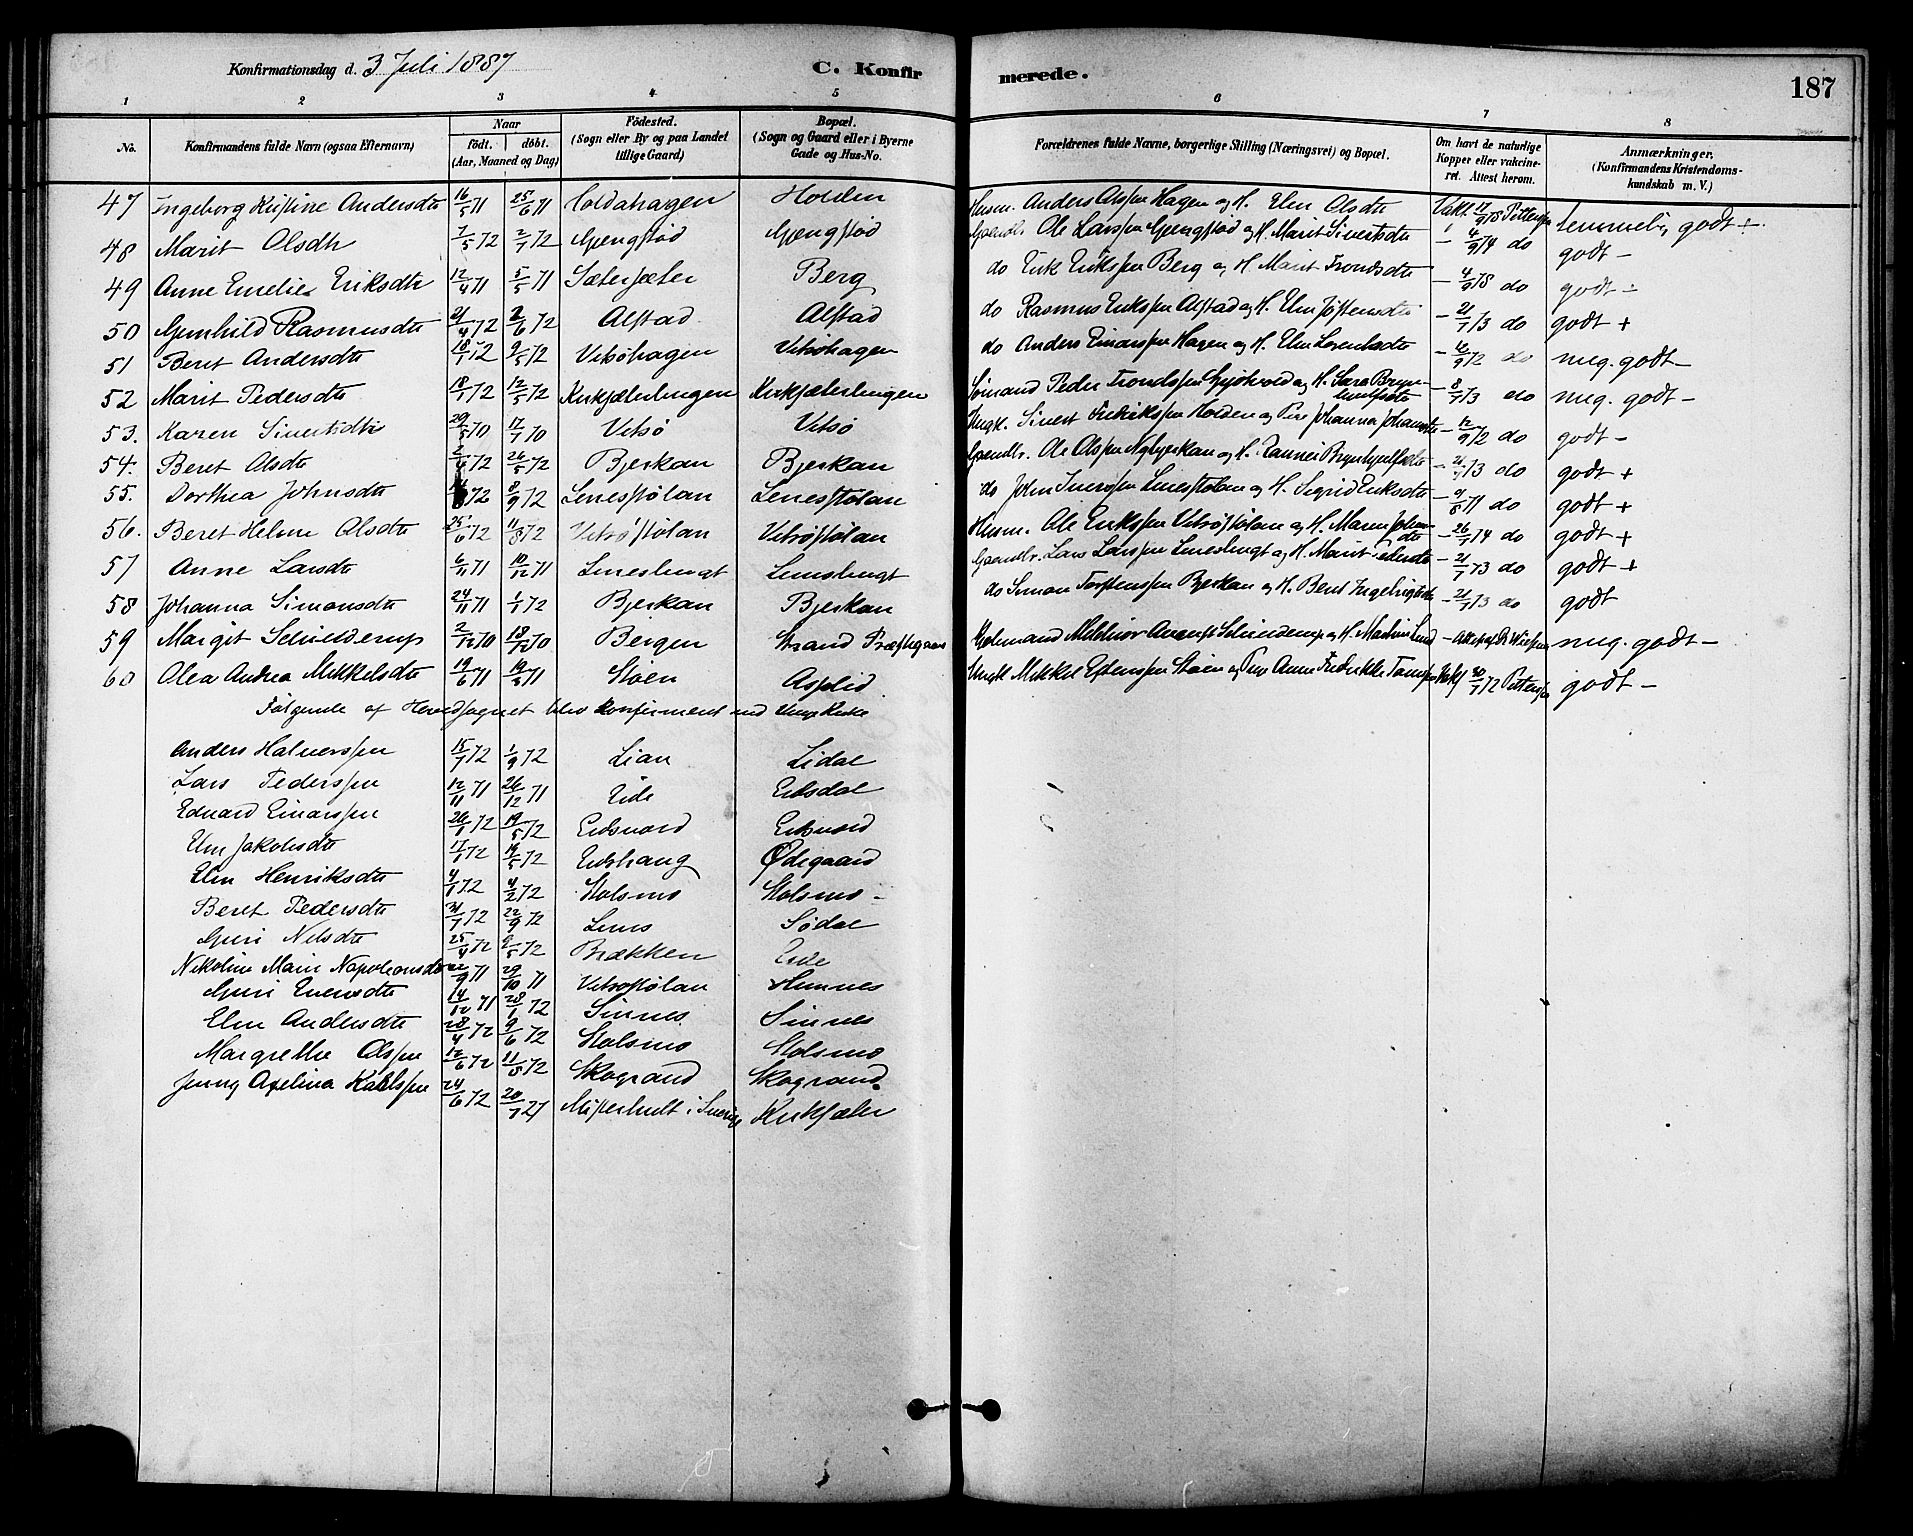 Konfirmationsdag d. 3 Juli 1887 C. Konfirmerede. 187
1 2 3 4 5 6 7 8
No. Konfirmandens fulde Navn (ogsaa Efternavn) Naar födt. döbt. (Aar, Maaned og Dag) Födested. (Sogn eller By og paa Landet tillige Gaard) Bopæl. (Sogn og Gaard eller i Byerne Gade og Hus-No. Forældrenes fulde Navne, borgerlige Stilling (Næringsvei) og Bopæl. Om havt de naturlige Kopper eller vakcineret. Attest herom. Anmærkninger. (Konfirmandens Kristendomskundskab m. V.)
47 Ingeborg Kristine Andersdtr 16/5 71 25/6 71 Holdahagen Holden Husm. Anders Olssen Hagen og H. Elen Olsdtr Vakc. temmelig godt +
48 Marit Olsdtr 7/5 72 2/7 72 Gjengstød Gjengstød Gaardbr. Ole Larssen Gjengstød og H. Marit Sivertsdtr - 4/9 74 do godt -
49 Anne Emelie Eriksdtr 12/4 71 5/5 71 Sætersæter Berg do Erik Erikssen Berg og H. Marit Trondsdtr - 4/9 78 do godt -
50 Gunhild Rasmusdtr 21/4 72 2/6 72 Alstad Alstad do Rasmus Erikssen Alstad og H. Elen Jostensdtr - 21/7 73 do godt +
51 Beret Andersdtr 18/1 72 9/5 72 Vitsøhagen Vitsøhagen do Anders Einarssen Hagen og H. Elen Lorentsdtr do meg. godt -
52 Marit Pedersdtr 18/1 72 12/5 72 Kirksæterlengen Kirksæterlengen Sømand Peder Trondssen og H. Sara Brynhulfsdtr - 8/7 73 do meg. godt -
53. Karen Sivertsdtr 29/5 70 17/7 70 Vitsø Vitsø Ungk. Sivert Fredrikssen Holden og Pige Johanna Johansdtr - 12/9 72 do godt -
54. Beret Olsdtr 2/4 72 26/5 72 Bjerkan Bjerkan Gaardbr. Ole Olssen Bjerkan og H. Rannei Brynhulfsdtr do godt +
55. Dorthea Johnsdtr 8/9 72 Lenesstølan Lenesstølan do John Iverssen Lenesstølan og H. Sigrid Eriksdtr do godt +
56. Beret Helene Olsdtr 25/6 72 11/8 72 Vitsøstølan Vitsøstølan Husm. Ole Erikssen Vitsøstølan og H. Maren Johnsdtr - 26/7 74 do godt +
57 Anne Larsdtr 6/11 71 10/12 71 Lenesbugt Lenesbugt Gaardbr. Lars Larssen Lenesbugt og H. Marit Pedersdtr - 21/7 73 do godt +
58 Johanna Simonsdtr 24/11 71 1/1 72 Bjerkan Bjerkan do Simon Torstenssen Bjerkan og H. Beret Ingebrigtsdtr - 21/7 73 do godt
59 Margit Schielderup 2/12 70 18/12 70 Bergen Strand Præstegaard Melchior August Schielderup og H. Martine Lund meg. godt -
60 Olea Andrea Mikkelsdtr 19/6 71 19/5 71 Støen Asplid Ungk. Mikkel Estenssen Støen og Pige Anne Fredrikke Vakc. 30/7 72 godt -
Følgende af Hovedsognet blev konfirmeret ved Vinje Kirke
Anders Halvorssen 15/7 72 1/9 72 Lian Lidal
Lars Pederssen 12/11 71 26/12 71 Eide Eidsdal
Edvard Einarssen 26/1 72 19/5 72 Eidsvord Eidsvord
Elen Jakobsdtr 17/1 72 19/5 72 Eidshaug Ødegaard
Elen Henriksdtr 4/1 72 4/2 72 Stolsmo Stolsmo -
Beret Pedersdtr 31/7 72 22/9 72 Lenes Sødal
Guri Nilsdtr 25/4 72 9/5 72 Brækken Eide
Nikoline Marie Napoleonsdtr 22/9 71 29/10 71 Vitsøstølan Hemnes
Guri Evensdtr 14/12 71 28/1 72 Sinnes Sinnes
Elen Andersdtr 28/4 72 9/6 72 Stolsmo Stolsmo
Margrethe Olssen 12/6 72 11/8 72 Skogrand Skogrand
Jenny Axelina Karlssen 24/6 72 Misterhult i Sverige Kirksæter